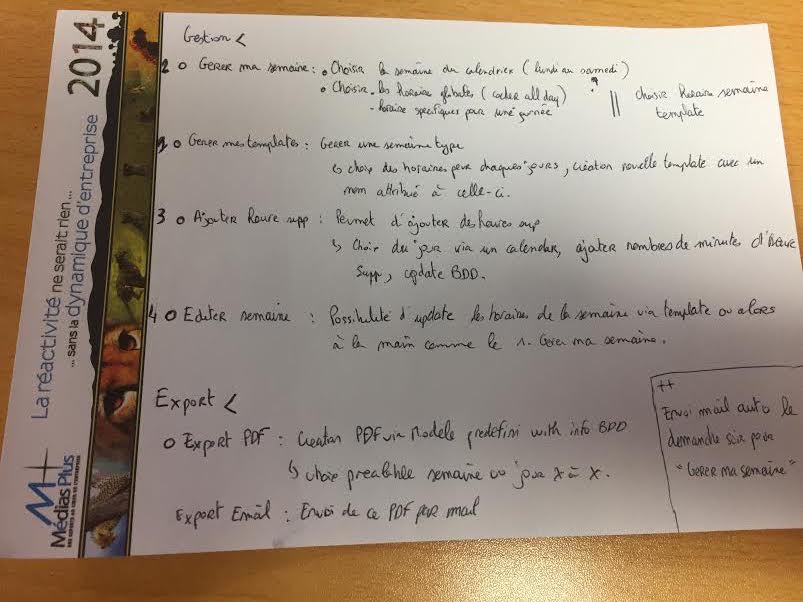 Gestion <
2 o Gerer ma semaine : • Choisir la semaine du calendrier (lundi au samedi)
• Choisir les horaire globales (cocher all day) ?
- horaire specifiques pour une journée
|| choisir horaire semaine
template
1 o Gerer mes templates : Gerer une semaine type
↳ choix des horaires pour chaques jours, création nouvelle template avec un
nom attribué à celle-ci.
3 o Ajouter heure supp : Permet d'ajouter des heures sup
↳ Choix du jour via un calendar, ajouter nombres de minutes d'heure
supp, update BDD.
4 o Editer semaine : Possibilité d'update les horaires de la semaine via template ou alors
à la main comme le 1. Gerer ma semaine.
Export <
o Export PDF : Creation PDF via Modèle predefini with info BDD
↳ choix prealable semaine ou jour X à X.
Export Email : Envoi de ce PDF par mail
++
Envoi mail auto le
demanche soir pour
"Gerer ma semaine"
La réactivité ne serait rien...
... sans la dynamique d'entreprise
2014
M+
Médias Plus